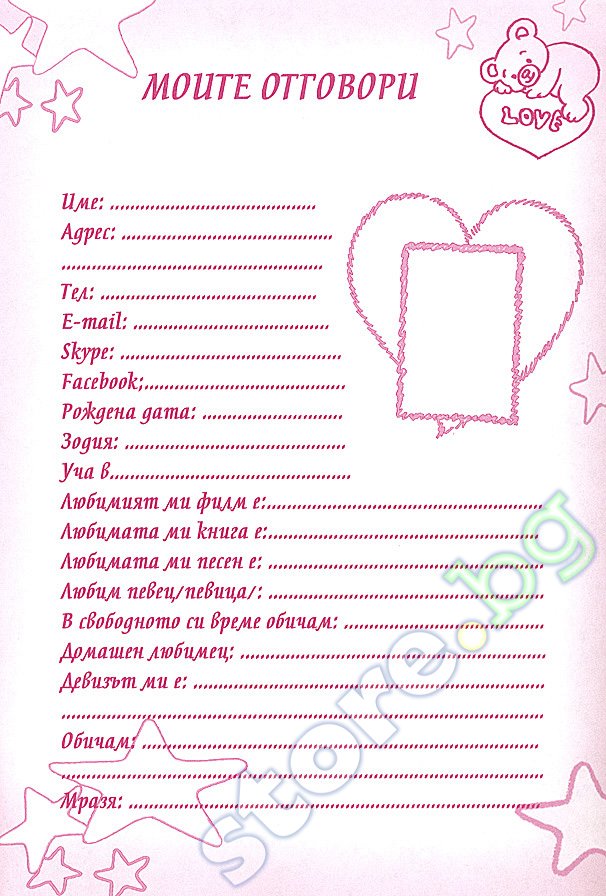 МОИТЕ ОТГОВОРИ
LOVE
Име: ........................................
Адрес: ........................................
..................................................
Тел: ........................................
E-mail: ......................................
Skype: ..........................................
Facebook;.......................................
Рождена дата: ...........................
Зодия: ..........................................
Уча в..............................................
Любимият ми филм е:.....................................................
Любимата ми книга е:....................................................
Любимата ми песен е: .....................................................
Любим певец/певица/: .....................................................
В свободното си време обичам: ......................................
Домашен любимец: ..........................................................
Девизът ми е: ...................................................................
............................................................................................
Обичам: ............................................................................
............................................................................................
Мразя: ...............................................................................
store.bg